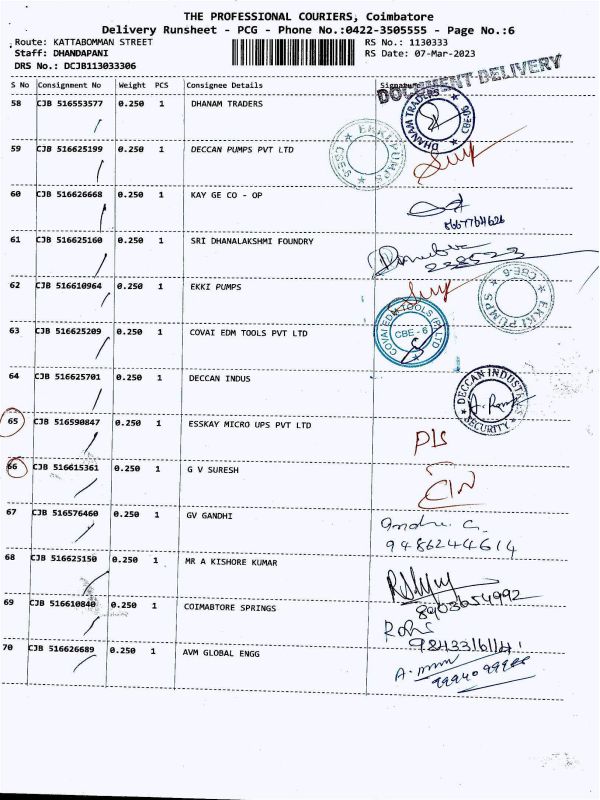 THE PROFESSIONAL COURIERS, Coimbatore
Delivery Runsheet - PCG - Phone No.:0422-3505555 - Page No.:6
Route: KATTABOMMAN STREET RS No.: 1130333
Staff: DHANDAPANI RS Date: 07-Mar-2023
DRS No.: DCJB113033306
DOCUMENT DELIVERY
S No Consignment No Weight PCS Consignee Details Signature
58 CJB 516553577 0.250 1 DHANAM TRADERS
DHANAM TRADERS
59 CJB 516625199 0.250 1 DECCAN PUMPS PVT LTD
EKKI PUMPS
60 CJB 516626668 0.250 1 KAY GE CO - OP
8667764626
61 CJB 516625160 0.250 1 SRI DHANALAKSHMI FOUNDRY
62 CJB 516610964 0.250 1 EKKI PUMPS
EKKI PUMPS CBE-6
63 CJB 516625209 0.250 1 COVAI EDM TOOLS PVT LTD
COVAI EDM TOOLS (P) LTD
CBE - 6
64 CJB 516625701 0.250 1 DECCAN INDUS
DECCAN INDUSTRIES
SECURITY
65 CJB 516590847 0.250 1 ESSKAY MICRO UPS PVT LTD
66 CJB 516615361 0.250 1 G V SURESH
67 CJB 516576460 0.250 1 GV GANDHI
9486244614
68 CJB 516625150 0.250 1 MR A KISHORE KUMAR
8903654992
69 CJB 516610840 0.250 1 COIMABTORE SPRINGS
70 CJB 516626689 0.250 1 AVM GLOBAL ENGG